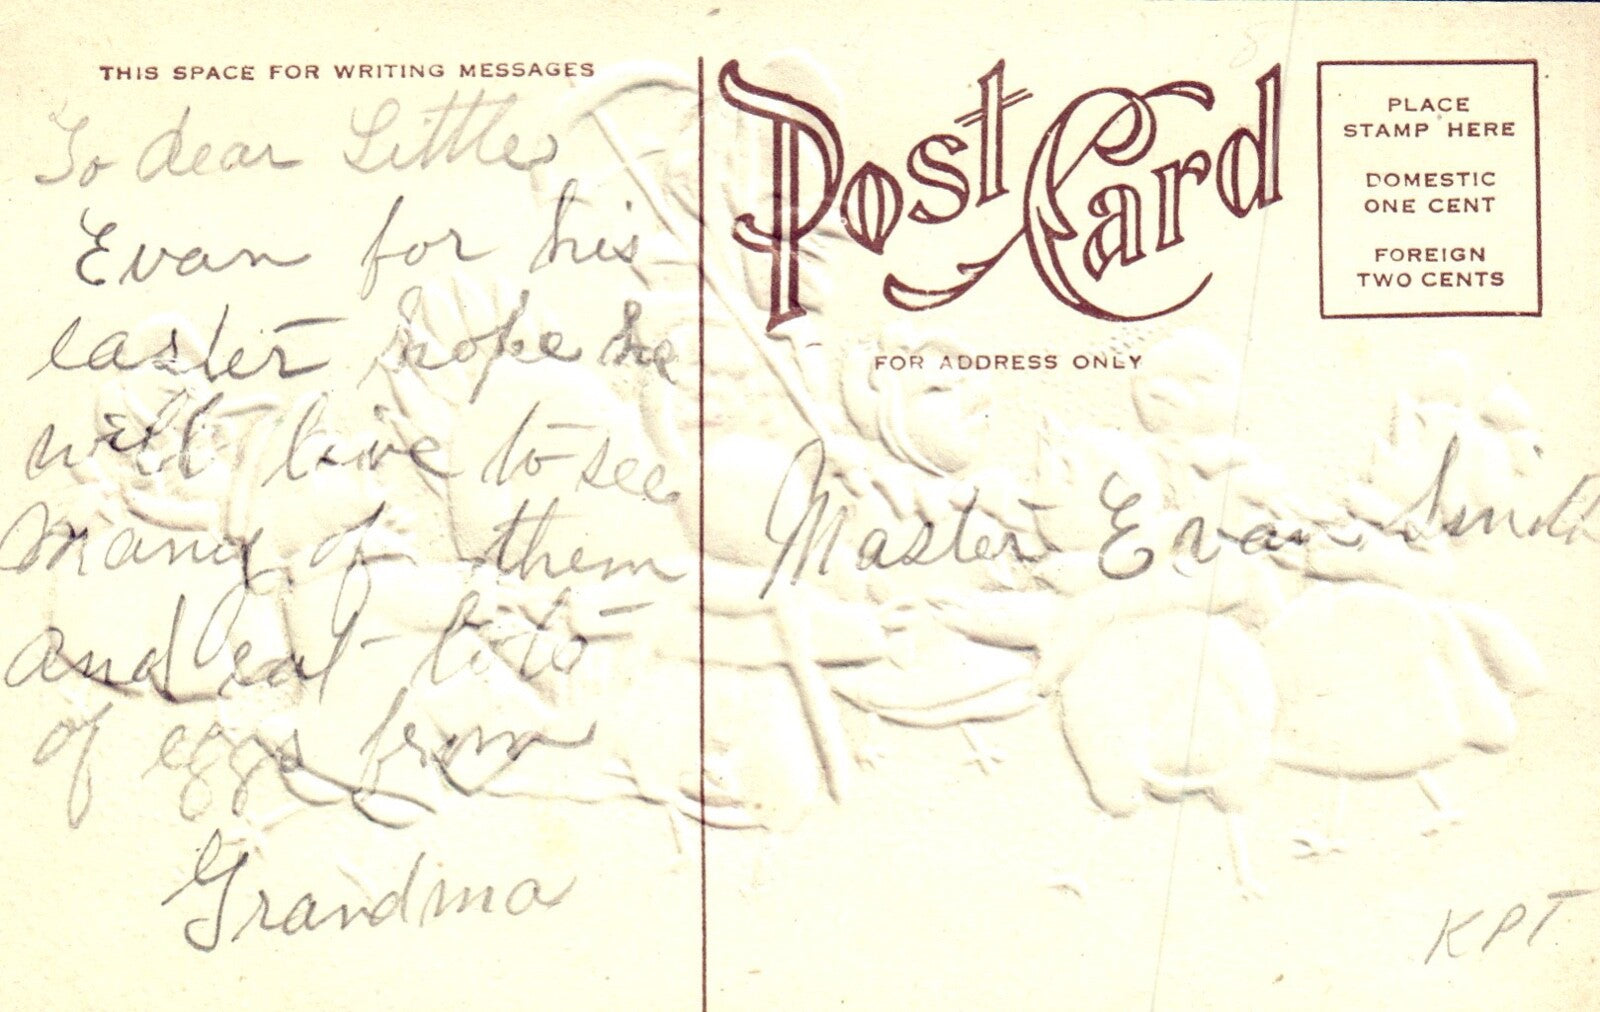 THIS SPACE FOR WRITING MESSAGES
To dear Little
Evan for his
easter hope he
will live to see
many of them
and eat lots
of eggs from
Grandma
Post Card
FOR ADDRESS ONLY
PLACE
STAMP HERE
DOMESTIC
ONE CENT
FOREIGN
TWO CENTS
Master Evan Smith
KPT